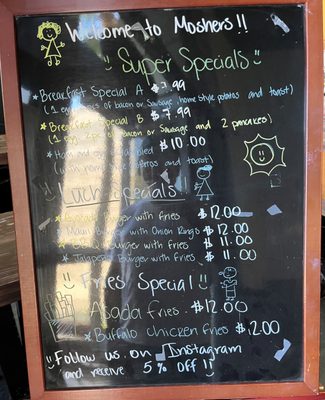 Welcome to Moshers!!
Super Specials
Breakfast Special A $7.99
(1 egg, of bacon or Sausage, home style potatos and toast)
Breakfast Special B $7.99
(1 egg, 2 of bacon or Sausage and 2 pancakes)
Ham and $10.00
(with home and toast)
Lunch Specials
Burger with Fries $12.00
Burger with Onion Rings $12.00
Burger with Fries $11.00
Jalapeño Burger with Fries $11.00
Fries Special
Asada Fries $12.00
Buffalo Chicken Fries $12.00
Follow us on Instagram
and receive 5% off!!